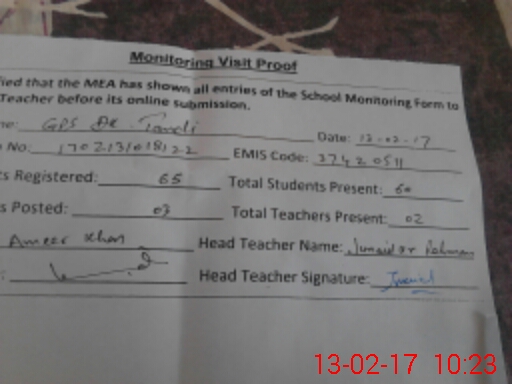 Monitoring Visit Proof
fied that the MEA has shown all entries of the School Monitoring Form to
Teacher before its online submission.
me: GPS Date: 13.02.17
No: EMIS Code: 37420511
ts Registered: 65 Total Students Present: 60
s Posted: 03 Total Teachers Present: 02
Ameer Khan Head Teacher Name: Junaid ur Rehman
: Head Teacher Signature: Junaid
13-02-17 10:23